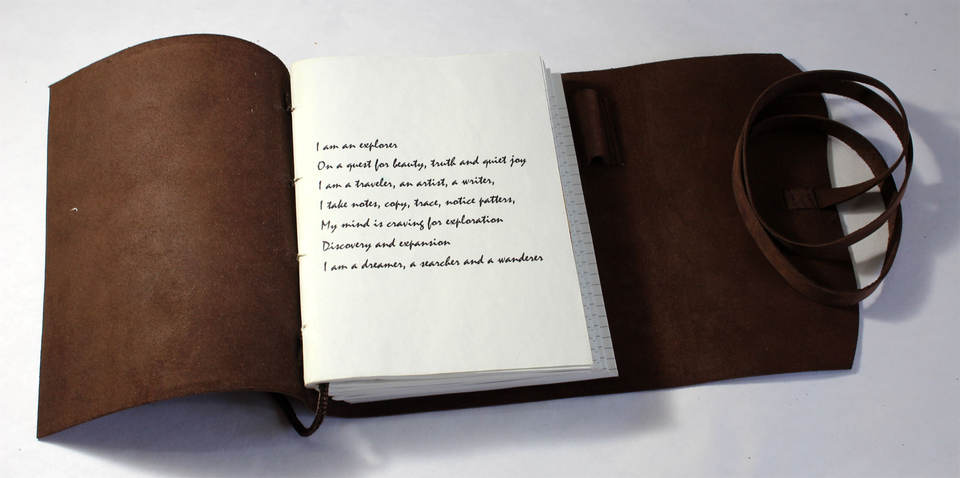 I am an explorer
On a quest for beauty, truth and quiet joy
I am a traveler, an artist, a writer,
I take notes, copy, trace, notice patters,
My mind is craving for exploration
Discovery and expansion
I am a dreamer, a searcher and a wanderer